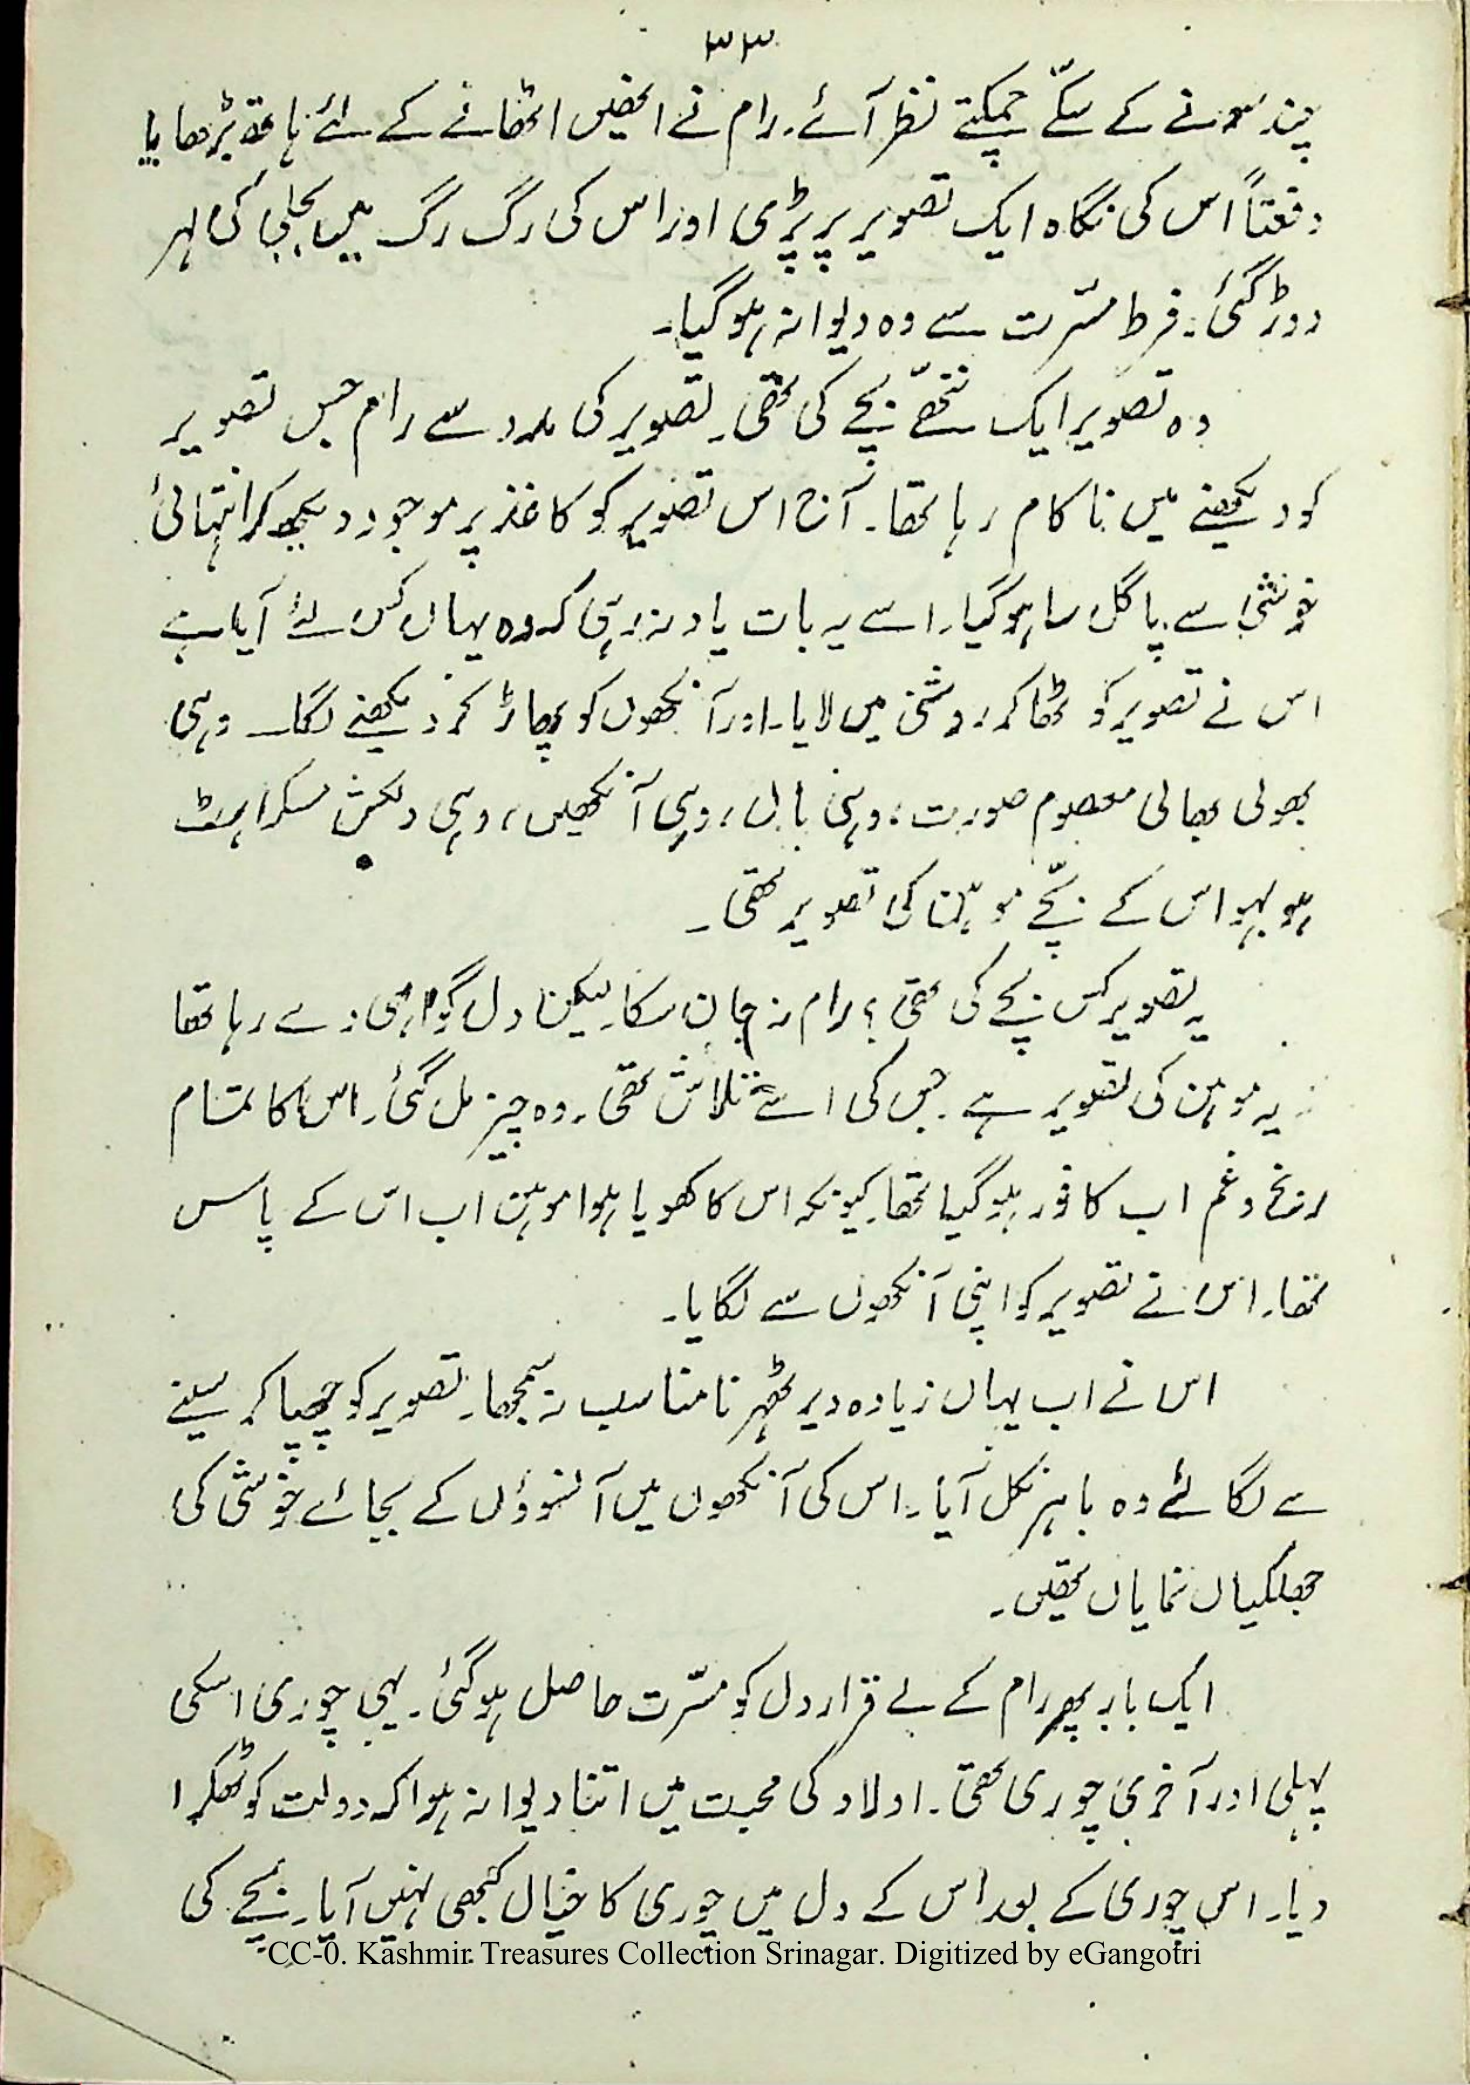 ۳۳
چند سونے کے سکّے چمکتے نظر آئے۔ رام نے انھیں اٹھانے کے لئے ہاتھ بڑھایا
دفعتاً اس کی نگاہ ایک تصویر پر پڑی اور اس کی رگ رگ میں بجلی کی لہر
دوڑ گئی۔ فرط مسّرت سے وہ دیوانہ ہو گیا۔
وہ تصویر ایک ننھّے بچے کی تھی۔ تصویر کی مدد سے رام جس تصویر
کو دیکھنے میں ناکام رہا تھا۔ آج اس تصویر کو کاغذ پر موجود دیکھ کر انتہائی
خوشی سے پاگل سا ہو گیا۔ اسے یہ بات یاد نہ رہی کہ وہ یہاں کس لئے آیا ہے
اس نے تصویر کو اٹھا کر روشنی میں لایا۔ اور آنکھوں کو پھاڑ کر دیکھنے لگا۔ وہی
بھولی بھالی معصوم صورت، وہی بال، وہی آنکھیں، وہی دلکش مسکراہٹ
ہو بہو اس کے بچّے موہن کی تصویر تھی۔
یہ تصویر کس بچے کی تھی؟ رام نہ جان سکا۔ لیکن دل گواہی دے رہا تھا
یہ موہن کی تصویر ہے۔ جس کی اسے تلاش تھی۔ وہ چیز مل گئی۔ اس کا تمام
رنج و غم اب کافور ہو گیا تھا۔ کیونکہ اس کا کھویا ہوا موہن اب اس کے پاس
تھا۔ اس نے تصویر کو اپنی آنکھوں سے لگایا۔
اس نے اب یہاں زیادہ دیر ٹھہرنا مناسب نہ سمجھا۔ تصویر کو چھپا کر سینے
سے لگائے وہ باہر نکل آیا۔ اس کی آنکھوں میں آنسوؤں کے بجائے خوشی کی
جھلکیاں نمایاں تھیں۔
ایک بار پھر رام کے بے قرار دل کو مسّرت حاصل ہو گئی۔ یہی چوری اسکی
پہلی اور آخری چوری تھی۔ اولاد کی محبت میں اتنا دیوانہ ہوا کہ دولت کو ٹھکرا
دیا۔ اس چوری کے بعد اس کے دل میں چوری کا خیال کبھی نہیں آیا۔ بچے کی
CC-0. Kashmir Treasures Collection Srinagar. Digitized by eGangotri